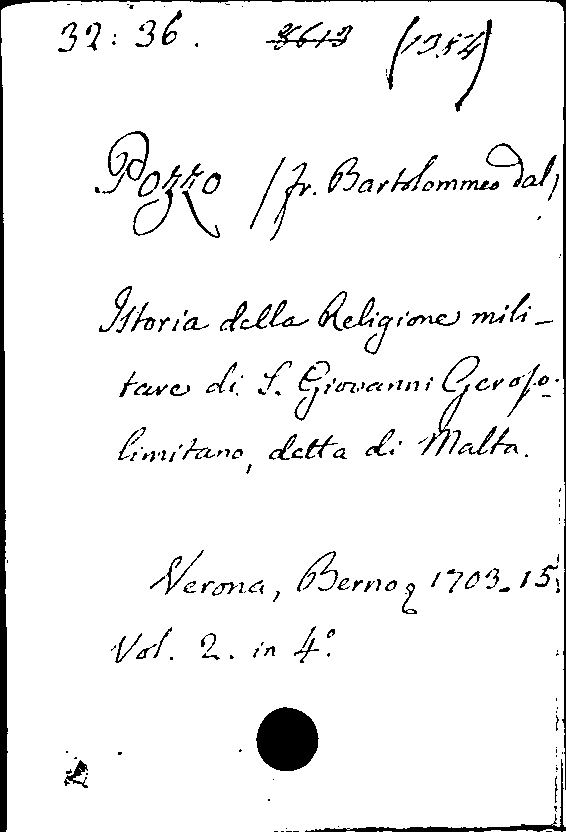 32: 36. 8613 (1354)
Pozzo / fr. Bartolommeo dal/
Istoria della Religione mili-
tare di S. Giovanni Geroso-
limitano, detta di Malta.
Verona, Berno, 1703-15.
Vol. 2. in 4°.